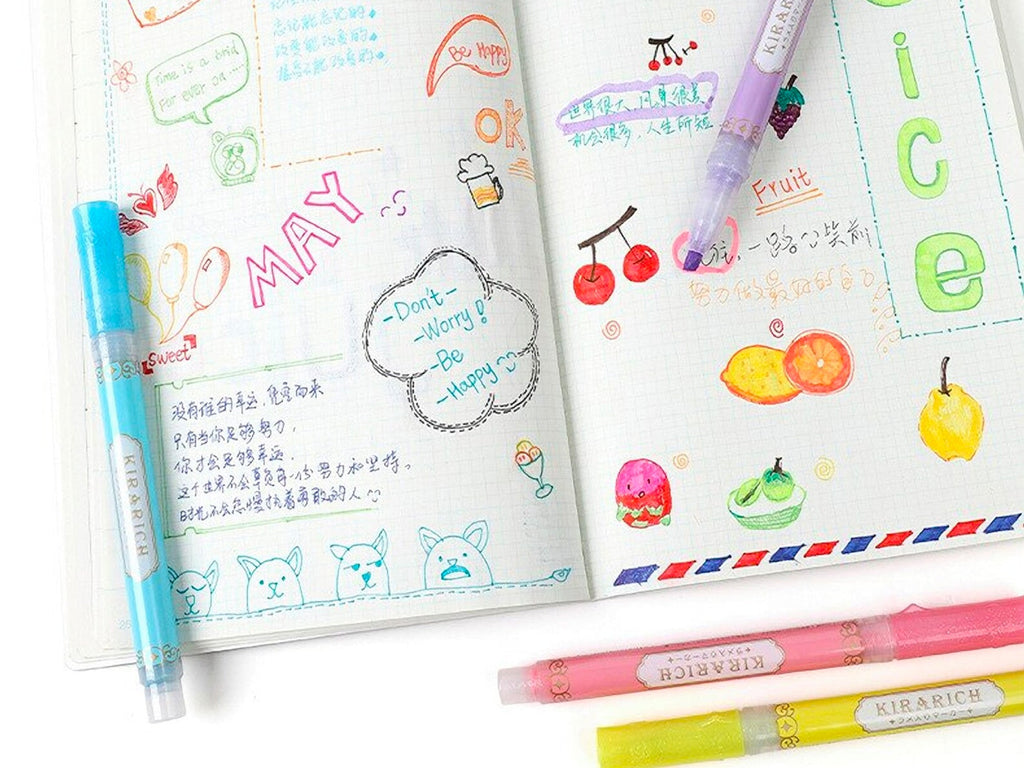 忘记能忘记的
改变能改变的
接受不能改变的
Time is a bird
For ever on .....
Be Happy
OK
MAY
Sweet
-Don't-
-Worry!
-Be
-Happy
没有谁的幸运,凭空而来
只有当你足够努力,
你才会足够幸运.
这个世界不会辜负每一份努力和坚持.
时光不会怠慢执着勇敢的人
KIRARICH
世界很大,风景很美
机会很多,人生所短
Fruit
往,一路
努力做最好的自己
ice
KIRAR
KIRARICH
ラメ入りマーカー
KIRARICH
ラメ入りマーカー